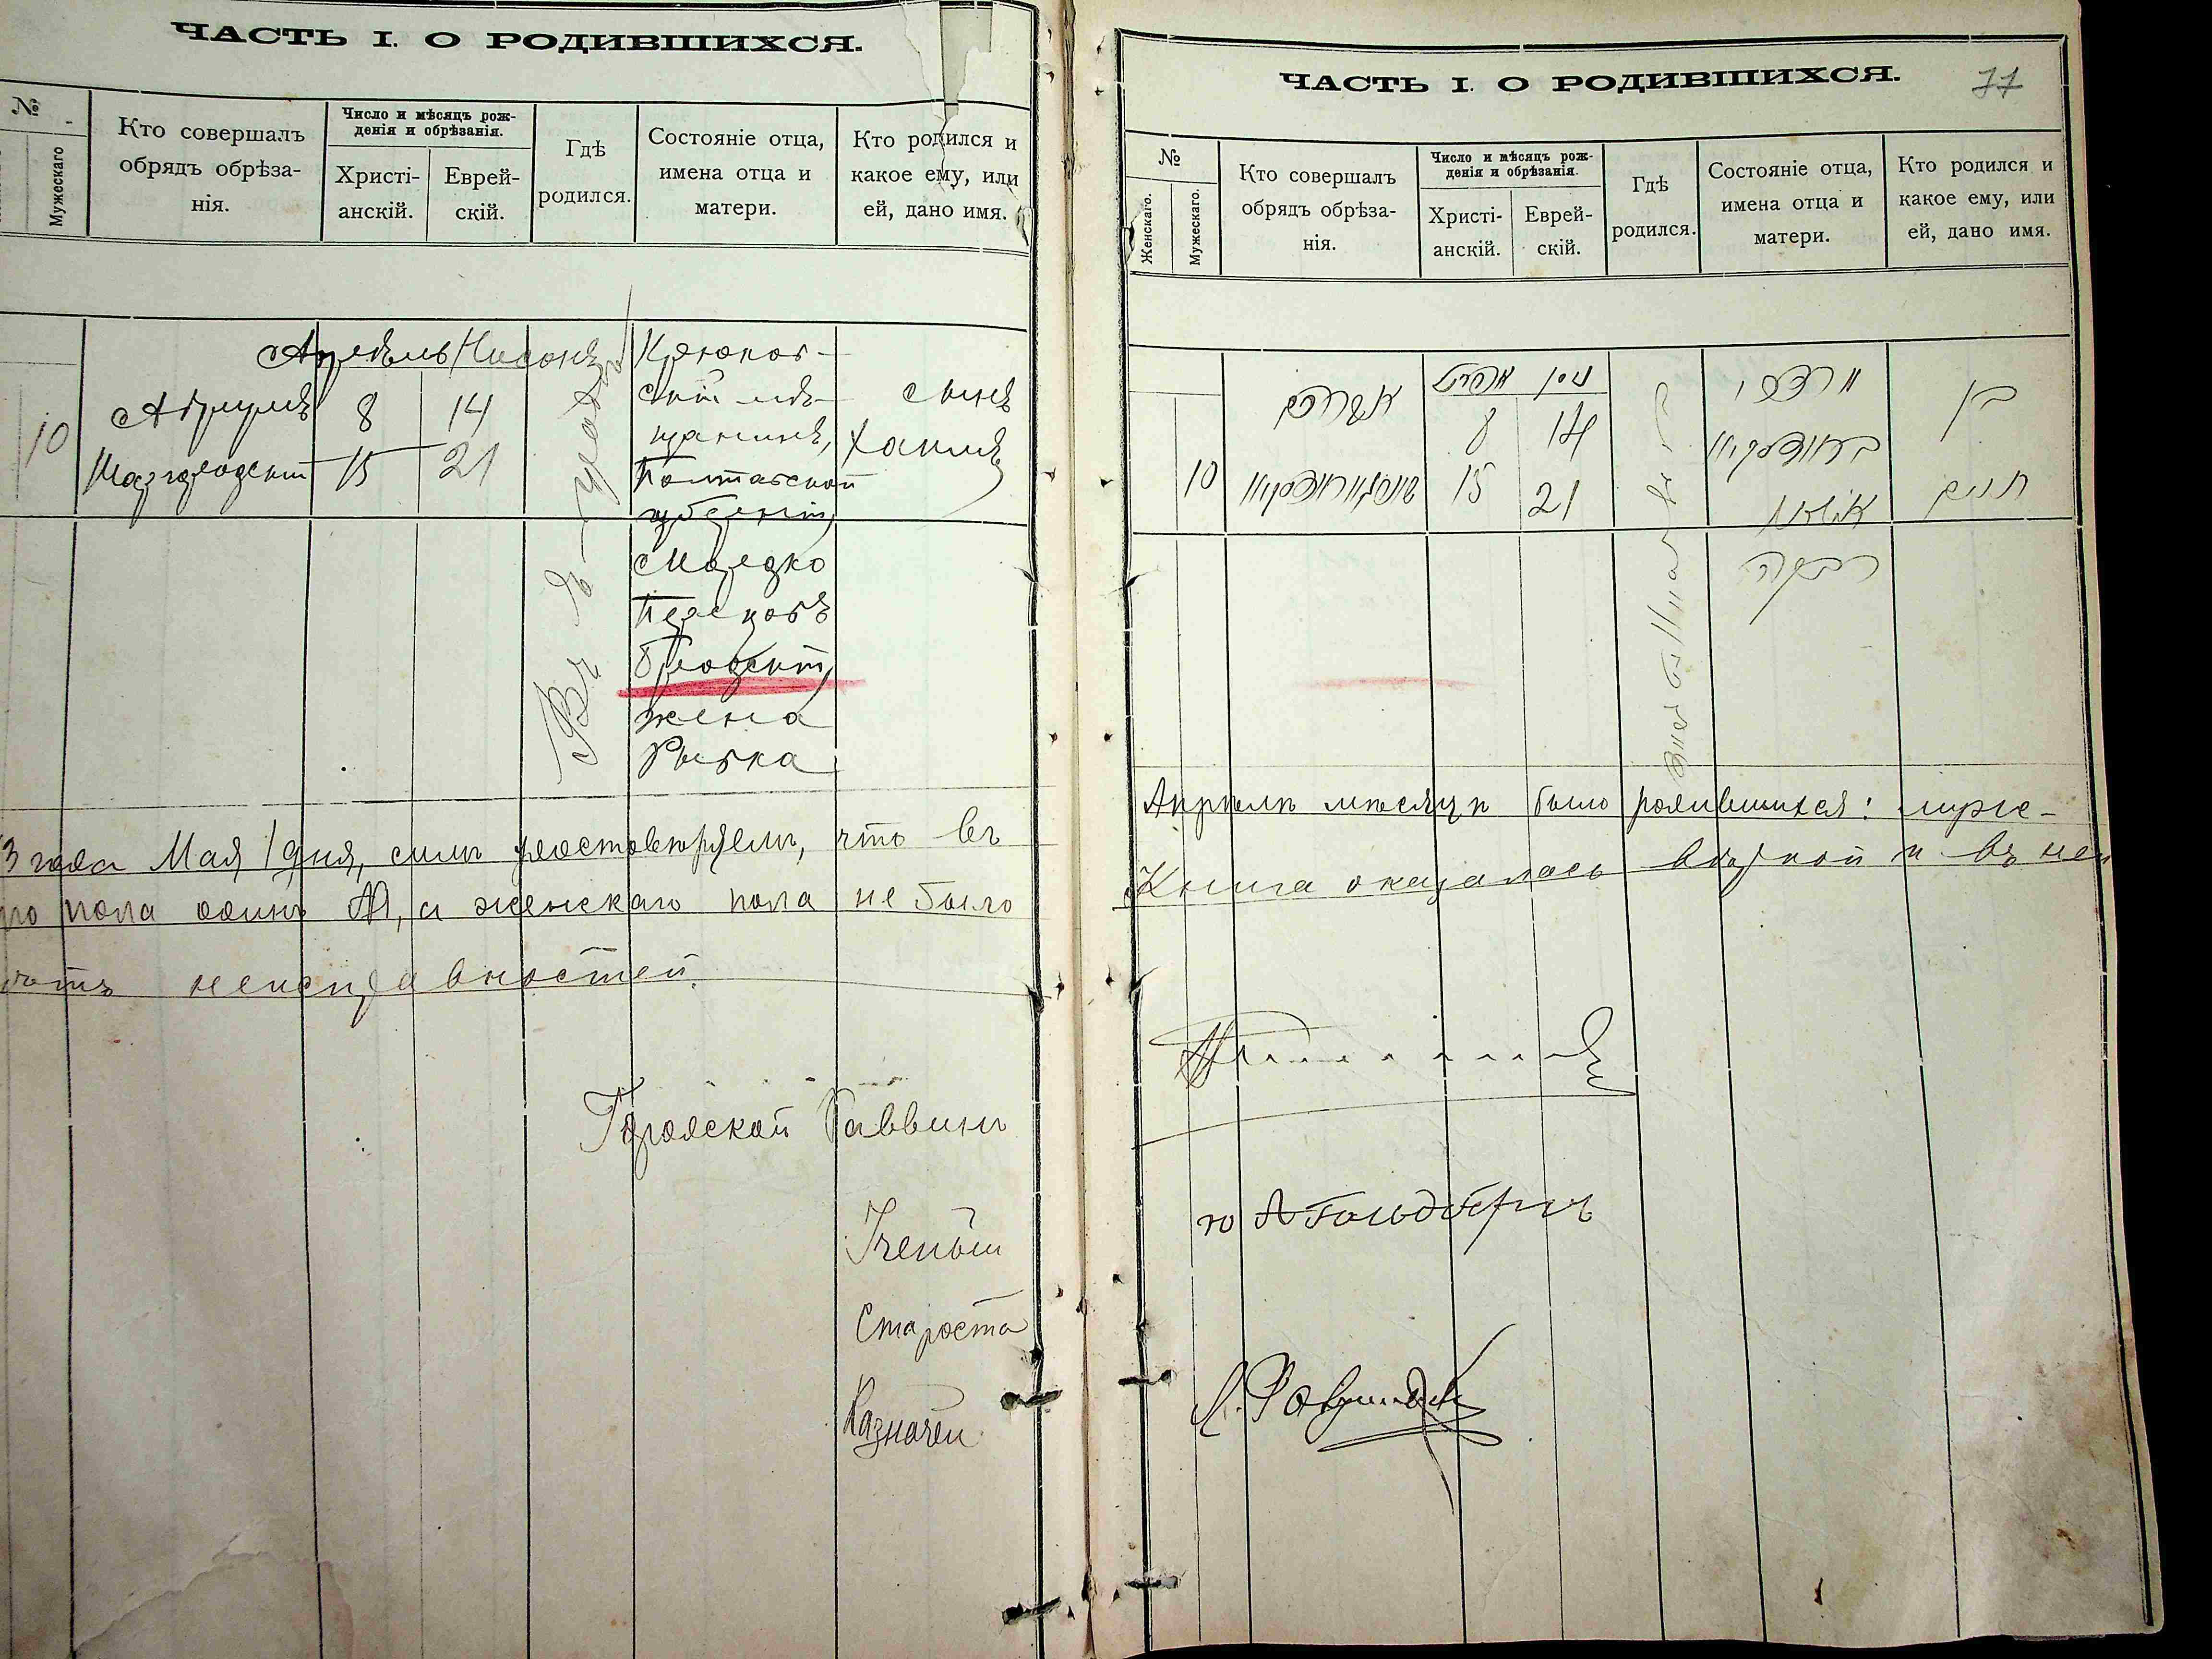 ЧАСТЬ I. О РОДИВШИХСЯ.
№
Мужескаго
Кто совершалъ
обрядъ обрѣза-
нія.
Число и мѣсяцъ рож-
денія и обрѣзанія.
Христі-
анскій.
Еврей-
скій.
Гдѣ
родился.
Состояніе отца,
имена отца и
матери.
Кто родился и
какое ему, или
ей, дано имя.
10
Апрѣль Нисонъ
8 14
15 21
Крюков-
скій мѣ-
щанинъ,
Полтавской
губерніи,
Мордко
Берковъ
Бродскій
жена
Рывка
сынъ
Хаимъ
3 года Мая 1 дня, симъ удостовѣряемъ, что въ
го пола одинъ , а женскаго пола не было
неисправностей.
Городской Раввинъ
Ученый
Староста
Казначей
ЧАСТЬ I. О РОДИВШИХСЯ.
77
№
Женскаго.
Мужескаго.
Кто совершалъ
обрядъ обрѣза-
нія.
Число и мѣсяцъ рож-
денія и обрѣзанія.
Христі-
анскій.
Еврей-
скій.
Гдѣ
родился.
Состояніе отца,
имена отца и
матери.
Кто родился и
какое ему, или
ей, дано имя.
10
אברהם
אפריל ניסן
8 14
15 21
מרדכי
בראדסקי
רבקה
בן
חיים
Апрѣлѣ мѣсяцѣ было родившихся: муже-
Книга оказалась вѣрной и въ ней